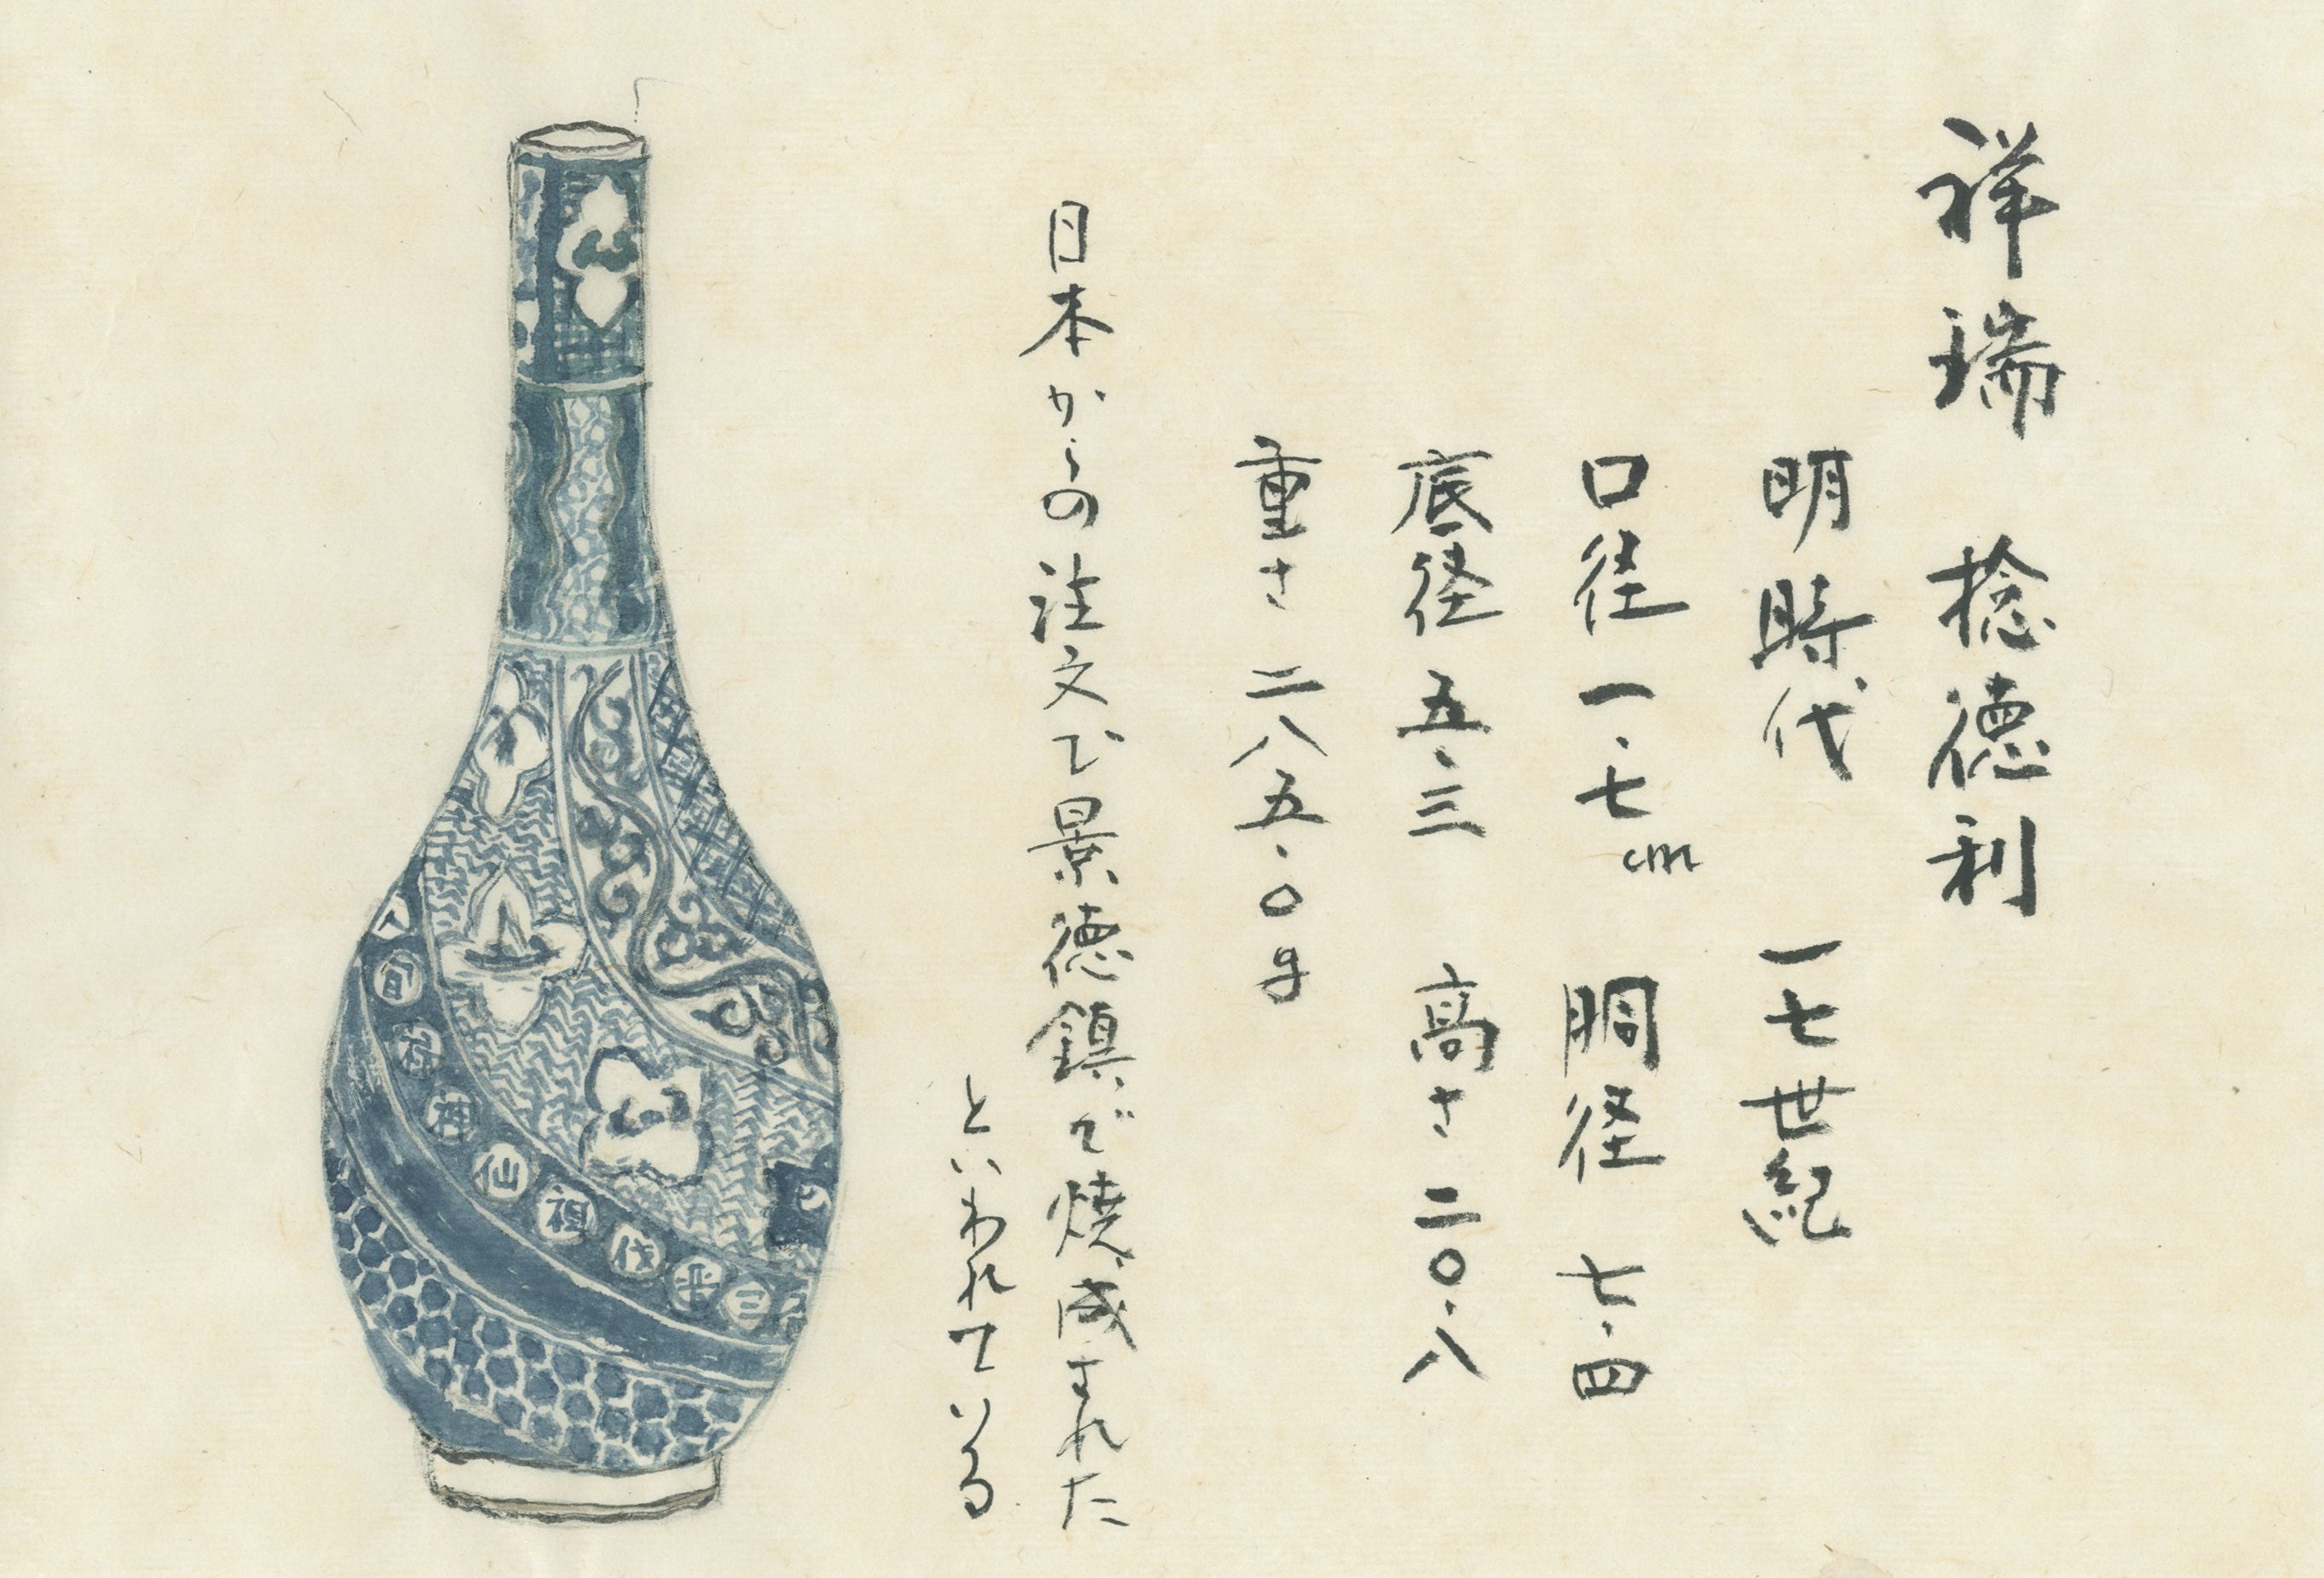 祥瑞 捻徳利
明時代 一七世紀
口径一.七cm 胴径 七.四
底径 五.三 高さ 二〇.八
重さ 二八五.〇g
日本からの注文で景徳鎮で焼成された
といわれている
仙
祖
伐
三